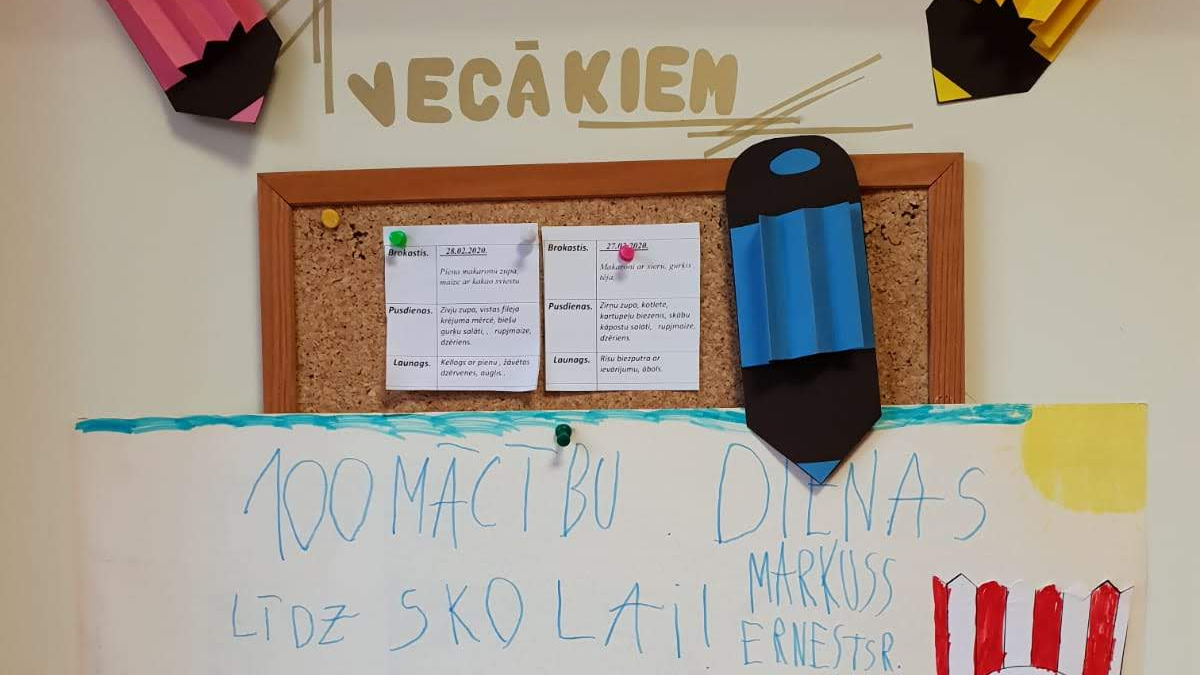 VECĀKIEM
Brokastis.
28.02.2020.
Piena makaronu zupa,
maize ar kakao sviestu
Pusdienas.
Zivju zupa, vistas fileja
krējuma mērcē, biešu
gurķu salāti, , rupjmaize,
dzēriens.
Launags.
Kellogs ar pienu , žāvētas
dzērvenes, auglis .
Brokastis.
27.02.2020.
Makaroni ar sieru, gurķis
tēja.
Pusdienas.
Zirņu zupa, kotlete,
kartupeļu biezenis, skābu
kāpostu salāti, rupjmaize,
dzēriens.
Launags.
Rīsu biezputra ar
ievārījumu, ābols.
100 MĀCĪBU DIENAS
LĪDZ SKOLAi!
MARKUSS
ERNESTSR.